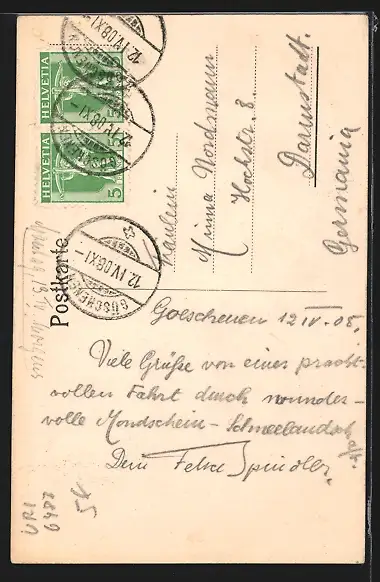 HELVETIA 5
HELVETIA 5
GÖSCHENEN
12.IV.08.XI-
Postkarte
Fräulein
Minna Nordmann
Hochstr. 8.
Darmstadt.
Germania
Goeschenen 12 IV - 08.
Viele Grüße von einer pracht-
vollen Fahrt durch wunder-
volle Mondschein - Schneelandsch
Dein Felix Spindler.
URI
6487
5K